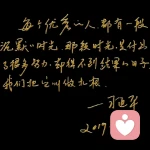 每个优秀的人都有一段
沉默的时光.那段时光,是付出
了很多努力,却得不到结果的日子
我们把它叫做扎根.
2019